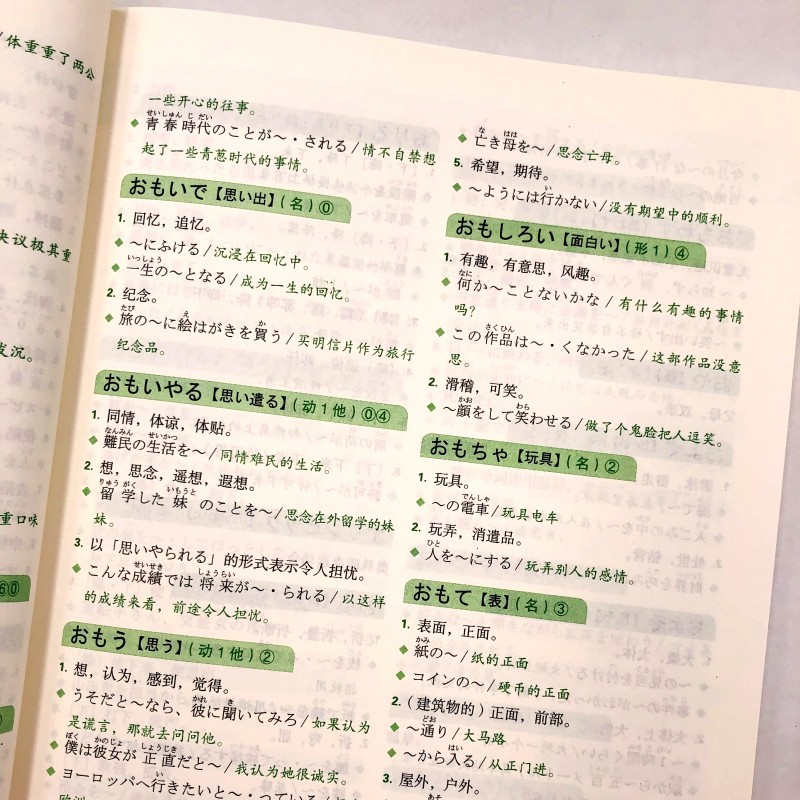 体重重了两公
决议极其重
发沉。
重口味
一些开心的往事。
せいしゅん じ だい
◆ 青春時代のことが～・される/情不自禁想
起了一些青葱时代的事情。
おもいで【思い出】(名)⓪
1. 回忆，追忆。
◆ ～にふける/沉浸在回忆中。
いっしょう
◆ 一生の～となる/成为一生的回忆。
2. 纪念。
たび え か
◆ 旅の～に絵はがきを買う/买明信片作为旅行
纪念品。
おもいやる【思い遣る】(动1他)⓪④
1. 同情，体谅，体贴。
なんみん せいかつ
◆ 難民の生活を～/同情难民的生活。
2. 想，思念，遥想，遐想。
りゅう がく いもうと
◆ 留学した妹のことを～/思念在外留学的妹
妹。
3. 以「思いやられる」的形式表示令人担忧。
せいせき しょうらい
◆ こんな成績では将来が～・られる/以这样
的成绩来看，前途令人担忧。
おもう【思う】(动1他)②
1. 想，认为，感到，觉得。
かれ き
◆ うそだと～なら、彼に聞いてみろ/如果认为
是谎言，那就去问问他。
ぼく かのじょ しょうじき
◆ 僕は彼女が正直だと～/我认为她很诚实。
い
ヨーロッパへ行きたいと～・っている/
な はは
◆ 亡き母を～/思念亡母。
5. 希望，期待。
い
◆ ～ようには行かない/没有期望中的顺利。
おもしろい【面白い】(形1)④
1. 有趣，有意思，风趣。
なに
◆ 何か～ことないかな/有什么有趣的事情
吗？
さくひん
◆ この作品は～・くなかった/这部作品没意
思。
2. 滑稽，可笑。
かお わら
◆ ～顔をして笑わせる/做了个鬼脸把人逗笑。
おもちゃ【玩具】(名)②
1. 玩具。
でんしゃ
◆ ～の電車/玩具电车
2. 玩弄，消遣品。
ひと
◆ 人を～にする/玩弄别人的感情。
おもて【表】(名)③
1. 表面，正面。
かみ
◆ 紙の～/纸的正面
◆ コインの～/硬币的正面
2.（建筑物的）正面，前部。
どお
◆ ～通り/大马路
はい
◆ ～から入る/从正门进。
3. 屋外，户外。